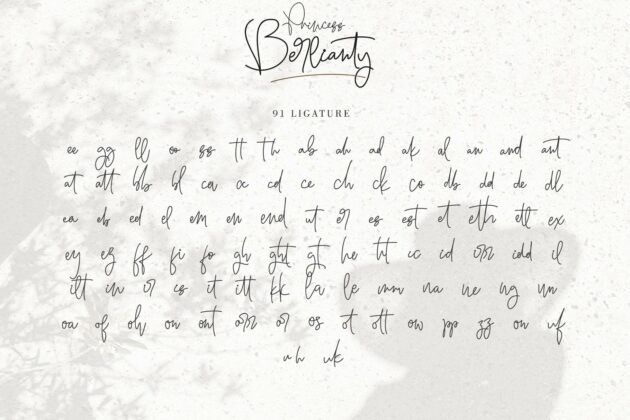 Princess
Berlianty
91 LIGATURE
ee gg ll oo ss tt th ab ah ad ak al an and ant
at att bb bl ca cd ce ch ck co db dd de dl
ea eb ed el em en end er es est et eth ett ex
ey ff fi fo gh ght gt he ht ic id idd il
ilt in ir is it itt kk la le mm na ne ng
oa of oh on ont or os ot ott ow pp zz uf
uh uk